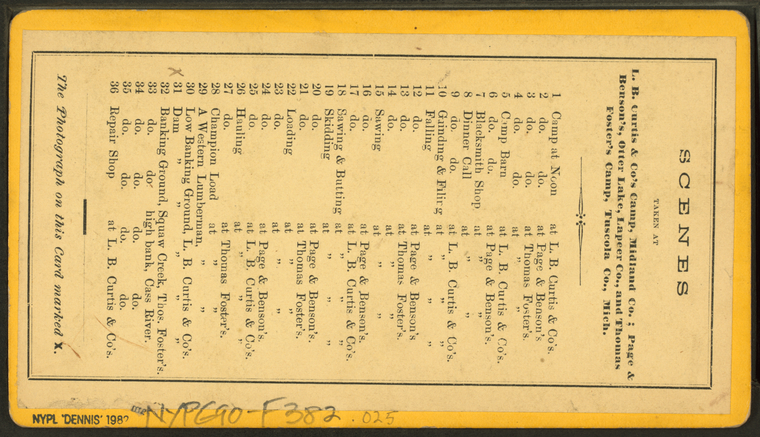 SCENES
TAKEN AT
L. B. Curtis & Co's Camp, Midland Co. ; Page &
Benson's, Otter Lake, Lapeer Co., and Thomas
Foster's Camp, Tuscola Co., Mich.
1 Camp at Noon at L. B. Curtis & Co's.
2 do. do. at Page & Benson's
3 do. do. at Thomas Foster's
4 do. do. at " "
5 Camp Barn at L. B. Curtis & Co's.
6 do. do. at Page & Benson's.
7 Blacksmith Shop " "
8 Dinner Call at " "
9 do. do. at L. B. Curtis & Co's.
10 Grinding & Filing at " " "
11 Falling at " " "
12 do. at Page & Benson's
13 do. at Thomas Foster's.
14 do. at " "
15 Sawing at " "
16 do. at Page & Benson's.
17 do. at L. B. Curtis & Co's.
18 Sawing & Butting at " " "
19 Skidding at " " "
20 do. at Page & Benson's.
21 do. at Thomas Foster's.
22 Loading at " "
23 do. at " "
24 do. at Page & Benson's.
25 do. at L. B. Curtis & Co's.
26 Hauling at " " "
27 do. at Thomas Foster's.
28 Champion Load at " "
29 A Western Lumberman, " "
30 Low Banking Ground, L. B. Curtis & Co's.
x 31 Dam " " " "
32 Banking Ground, Squaw Creek, Thos. Foster's.
33 do. do. high bank, Cass River.
34 do. do. do. do.
35 do. do. do. do.
36 Repair Shop at L. B. Curtis & Co's.
The Photograph on this Card marked X.
NYPL 'DENNIS' 198?
NYPG90-F382 .025